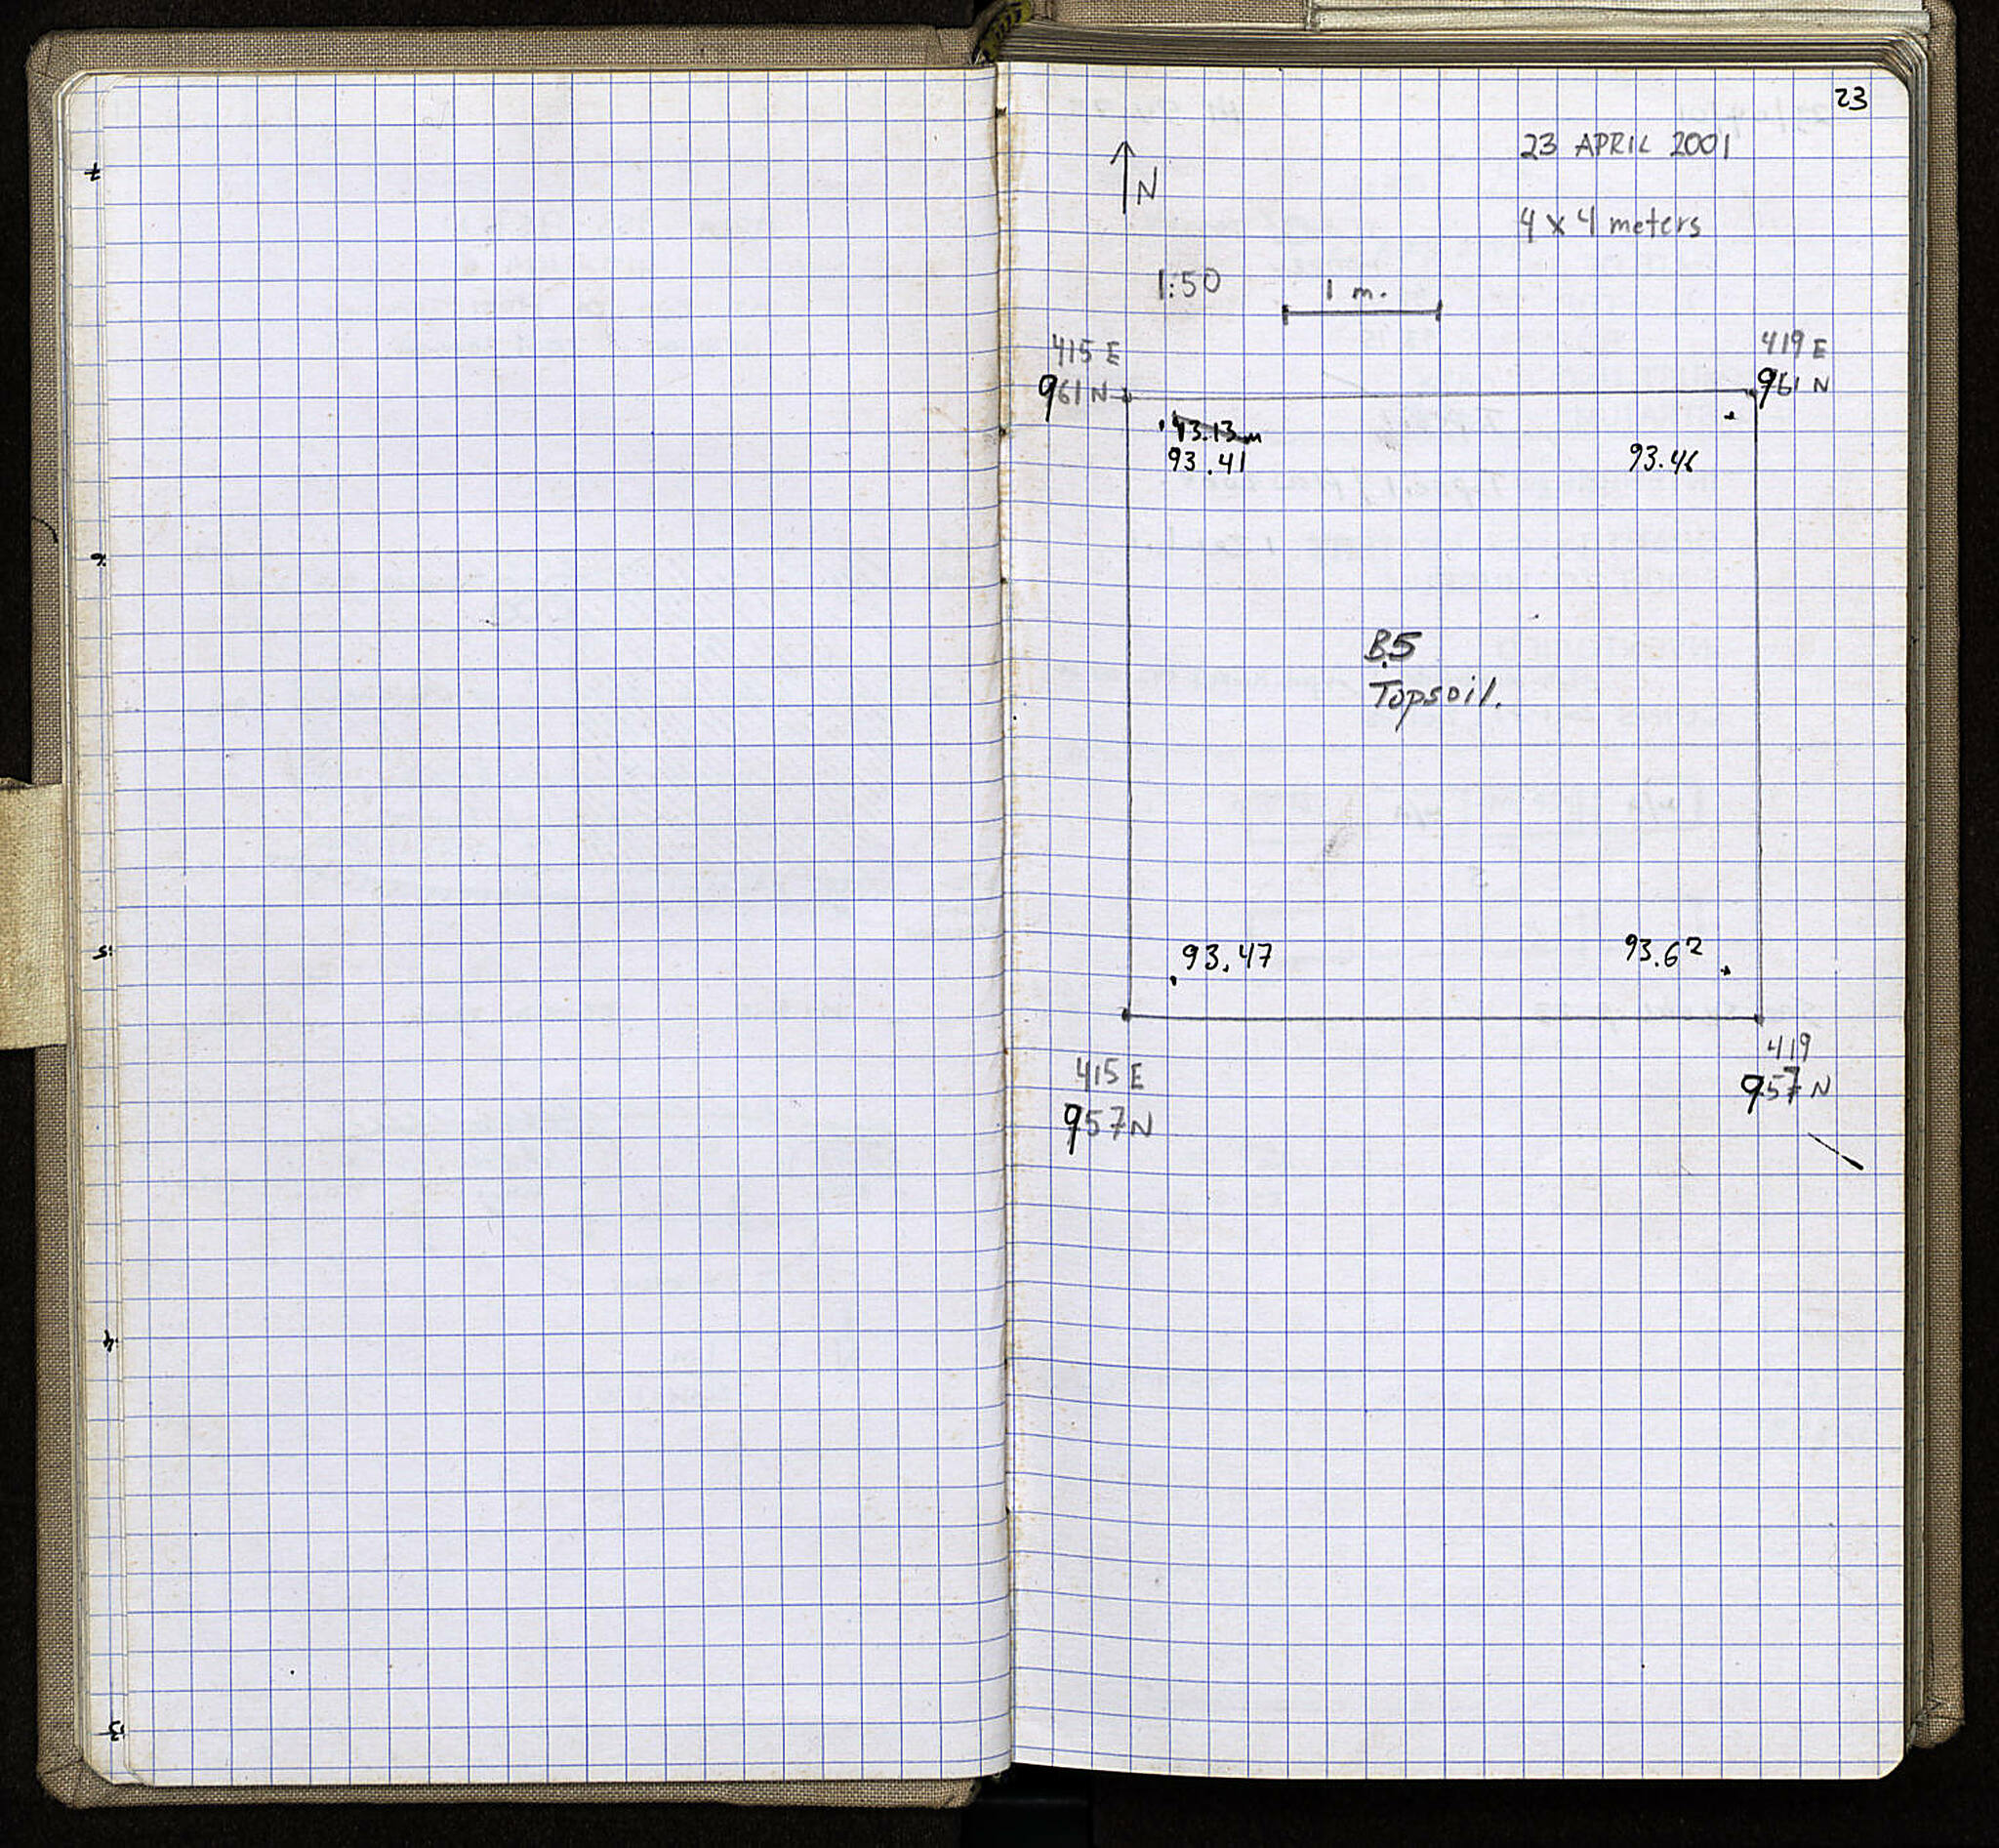 23
23 APRIL 2001
N
4 x 4 meters
1:50
1 m.
415 E
961 N
419 E
961 N
93.13 m
93.41
93.46
B.5
Topsoil.
93.47
93.62
415 E
957 N
419
957 N